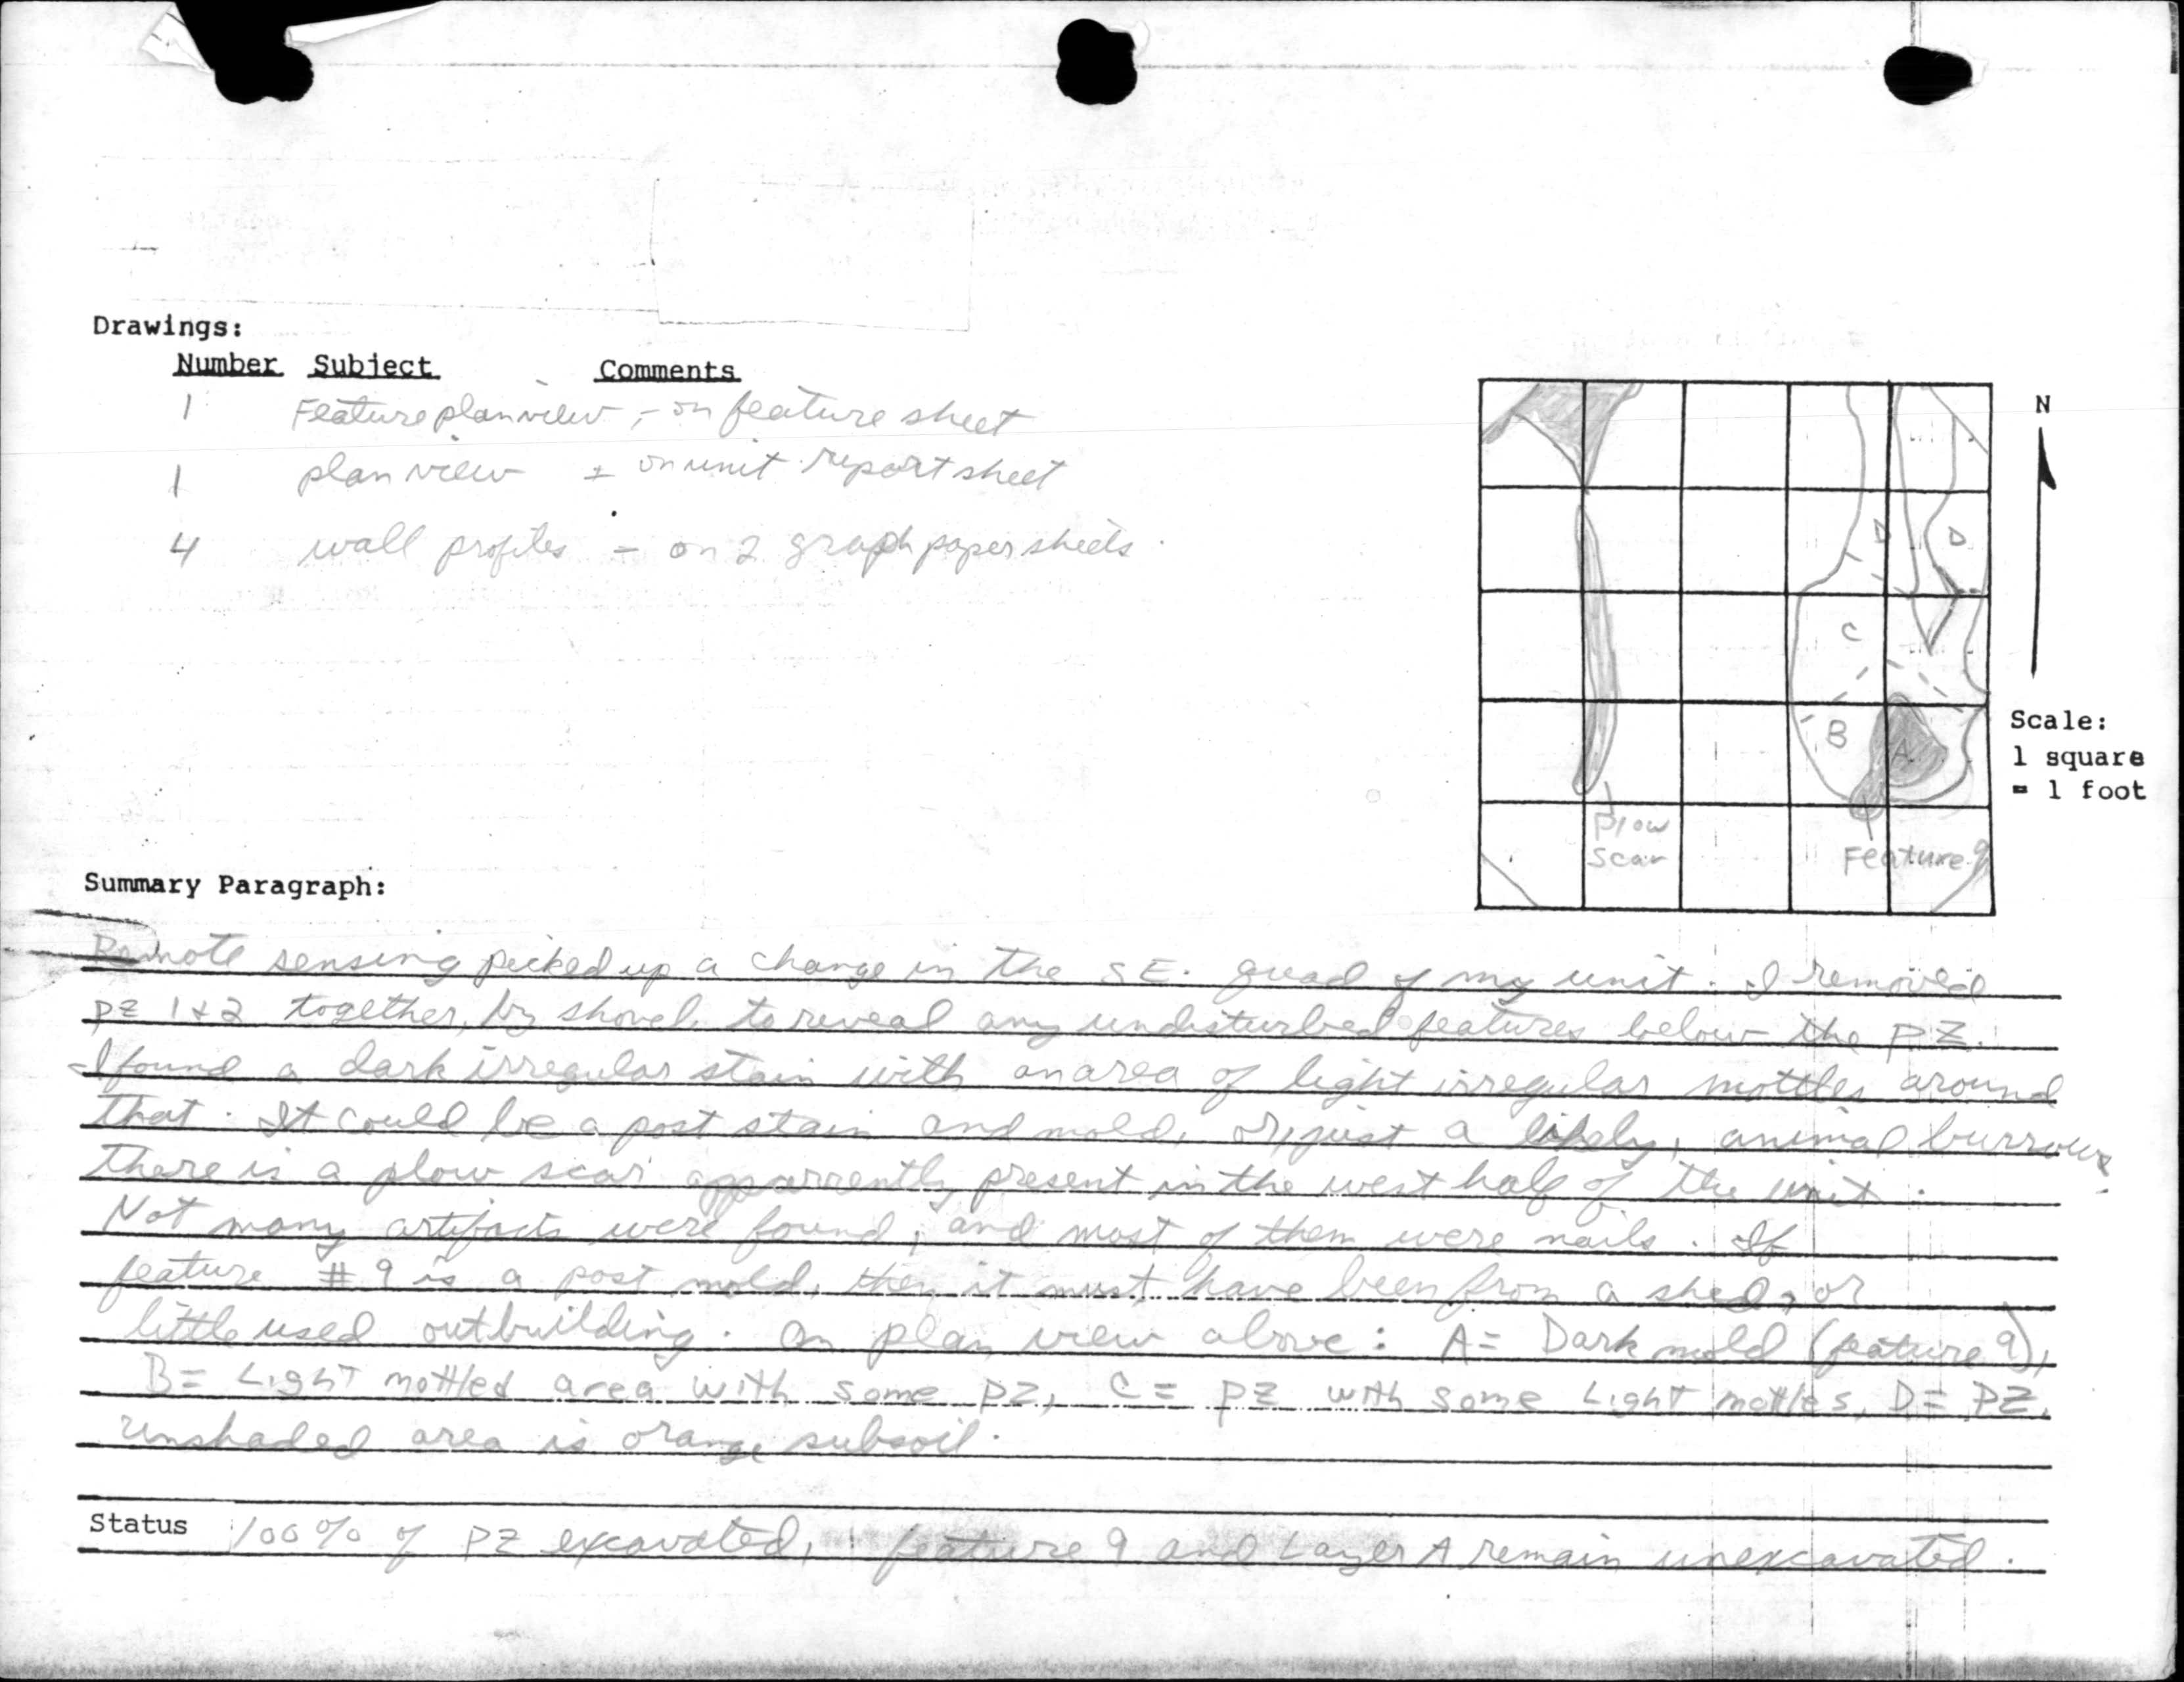 Drawings:
Number Subject Comments
1 Feature planview, - on feature sheet
1 plan view = on unit report sheet
4 wall profiles - on 2 graph paper sheets.
N
D D
C
B A
Scale:
1 square
= 1 foot
Plow
Scar
Feature 9
Summary Paragraph:
Remote sensing picked up a change in the SE. quad of my unit. I removed
PZ 1+2 together, by shovel, to reveal any undisturbed features below the PZ.
I found a dark irregular stain with an area of light irregular mottles around
that. It could be a post stain and mold, or, just a likely, animal burrows.
There is a plow scar apparrently present in the west half of the unit.
Not many artifacts were found, and most of them were nails. If
feature #9 is a post mold, then it must have been from a shed, or
little used outbuilding. On plan view above: A= Dark mold (feature 9),
B= Light mottled area with some PZ, C= PZ with some Light mottles, D= PZ,
unshaded area is orange subsoil.
Status 100% of PZ excavated, feature 9 and Layer A remain unexcavated.